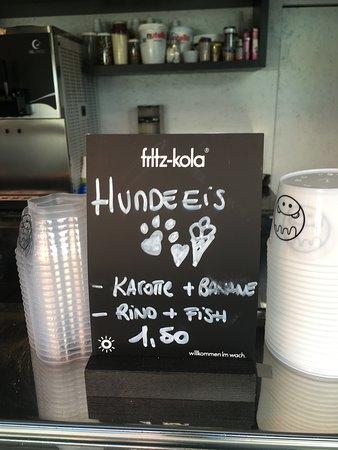 fritz-kola®
HUNDEEIS
- KAROTTE + BANANE
- RIND + FISH
1,50
willkommen im wach.